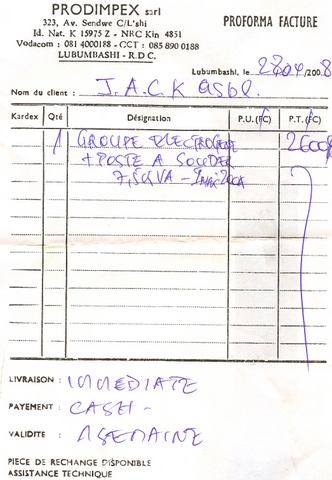 PRODIMPEX sarl
323, Av. Sendwe C/L'shi
Id. Nat. K 15975 Z - NRC Kin 4851
Vodacom : 081 4000188 - CCT : 085 890 0188
LUBUMBASHI - R.D.C.
PROFORMA FACTURE
Lubumbashi, le 28/04/2008
Nom du client : J.A.C.K asbl.
Kardex Qté Désignation P.U.(FC) P.T.(FC)
1 GROUPE ELECTROGENE 2600$
+ POSTE A SOUDER
7,5KVA -
LIVRAISON : IMMEDIATE
PAYEMENT : CASH -
VALIDITE : 1 SEMAINE
PIECE DE RECHANGE DISPONIBLE
ASSISTANCE TECHNIQUE